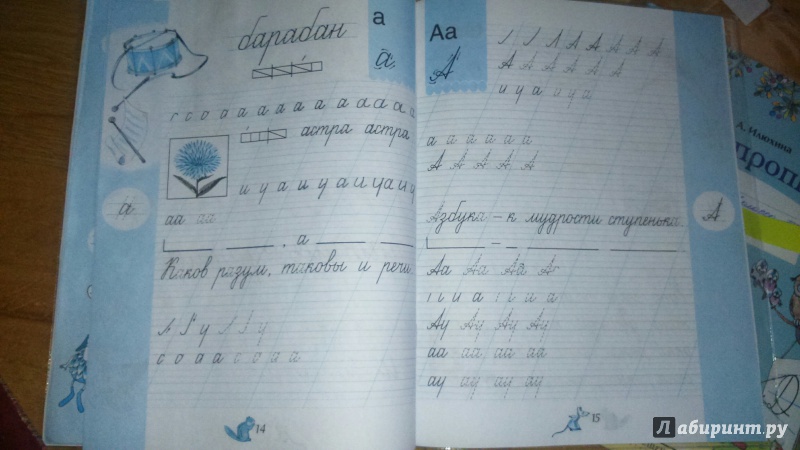 барабан
а
а
с с о о а а а а а а а а а
астра астра
и у а и у а и у а и у
а
аа аа
, а
Каков разум, таковы и речи.
л Г у л Г у
с о а а с о а а
14
Аа
А
А А А А А А
и у а и у а
а а а а а а
А А А А А
Азбука – к мудрости ступенька.
А
Аа Аа Аа А
и а и а
Ау Ау Ау Ау
аа аа аа аа
ау ау ау ау
15
А. Илюхина
Лабиринт.ру